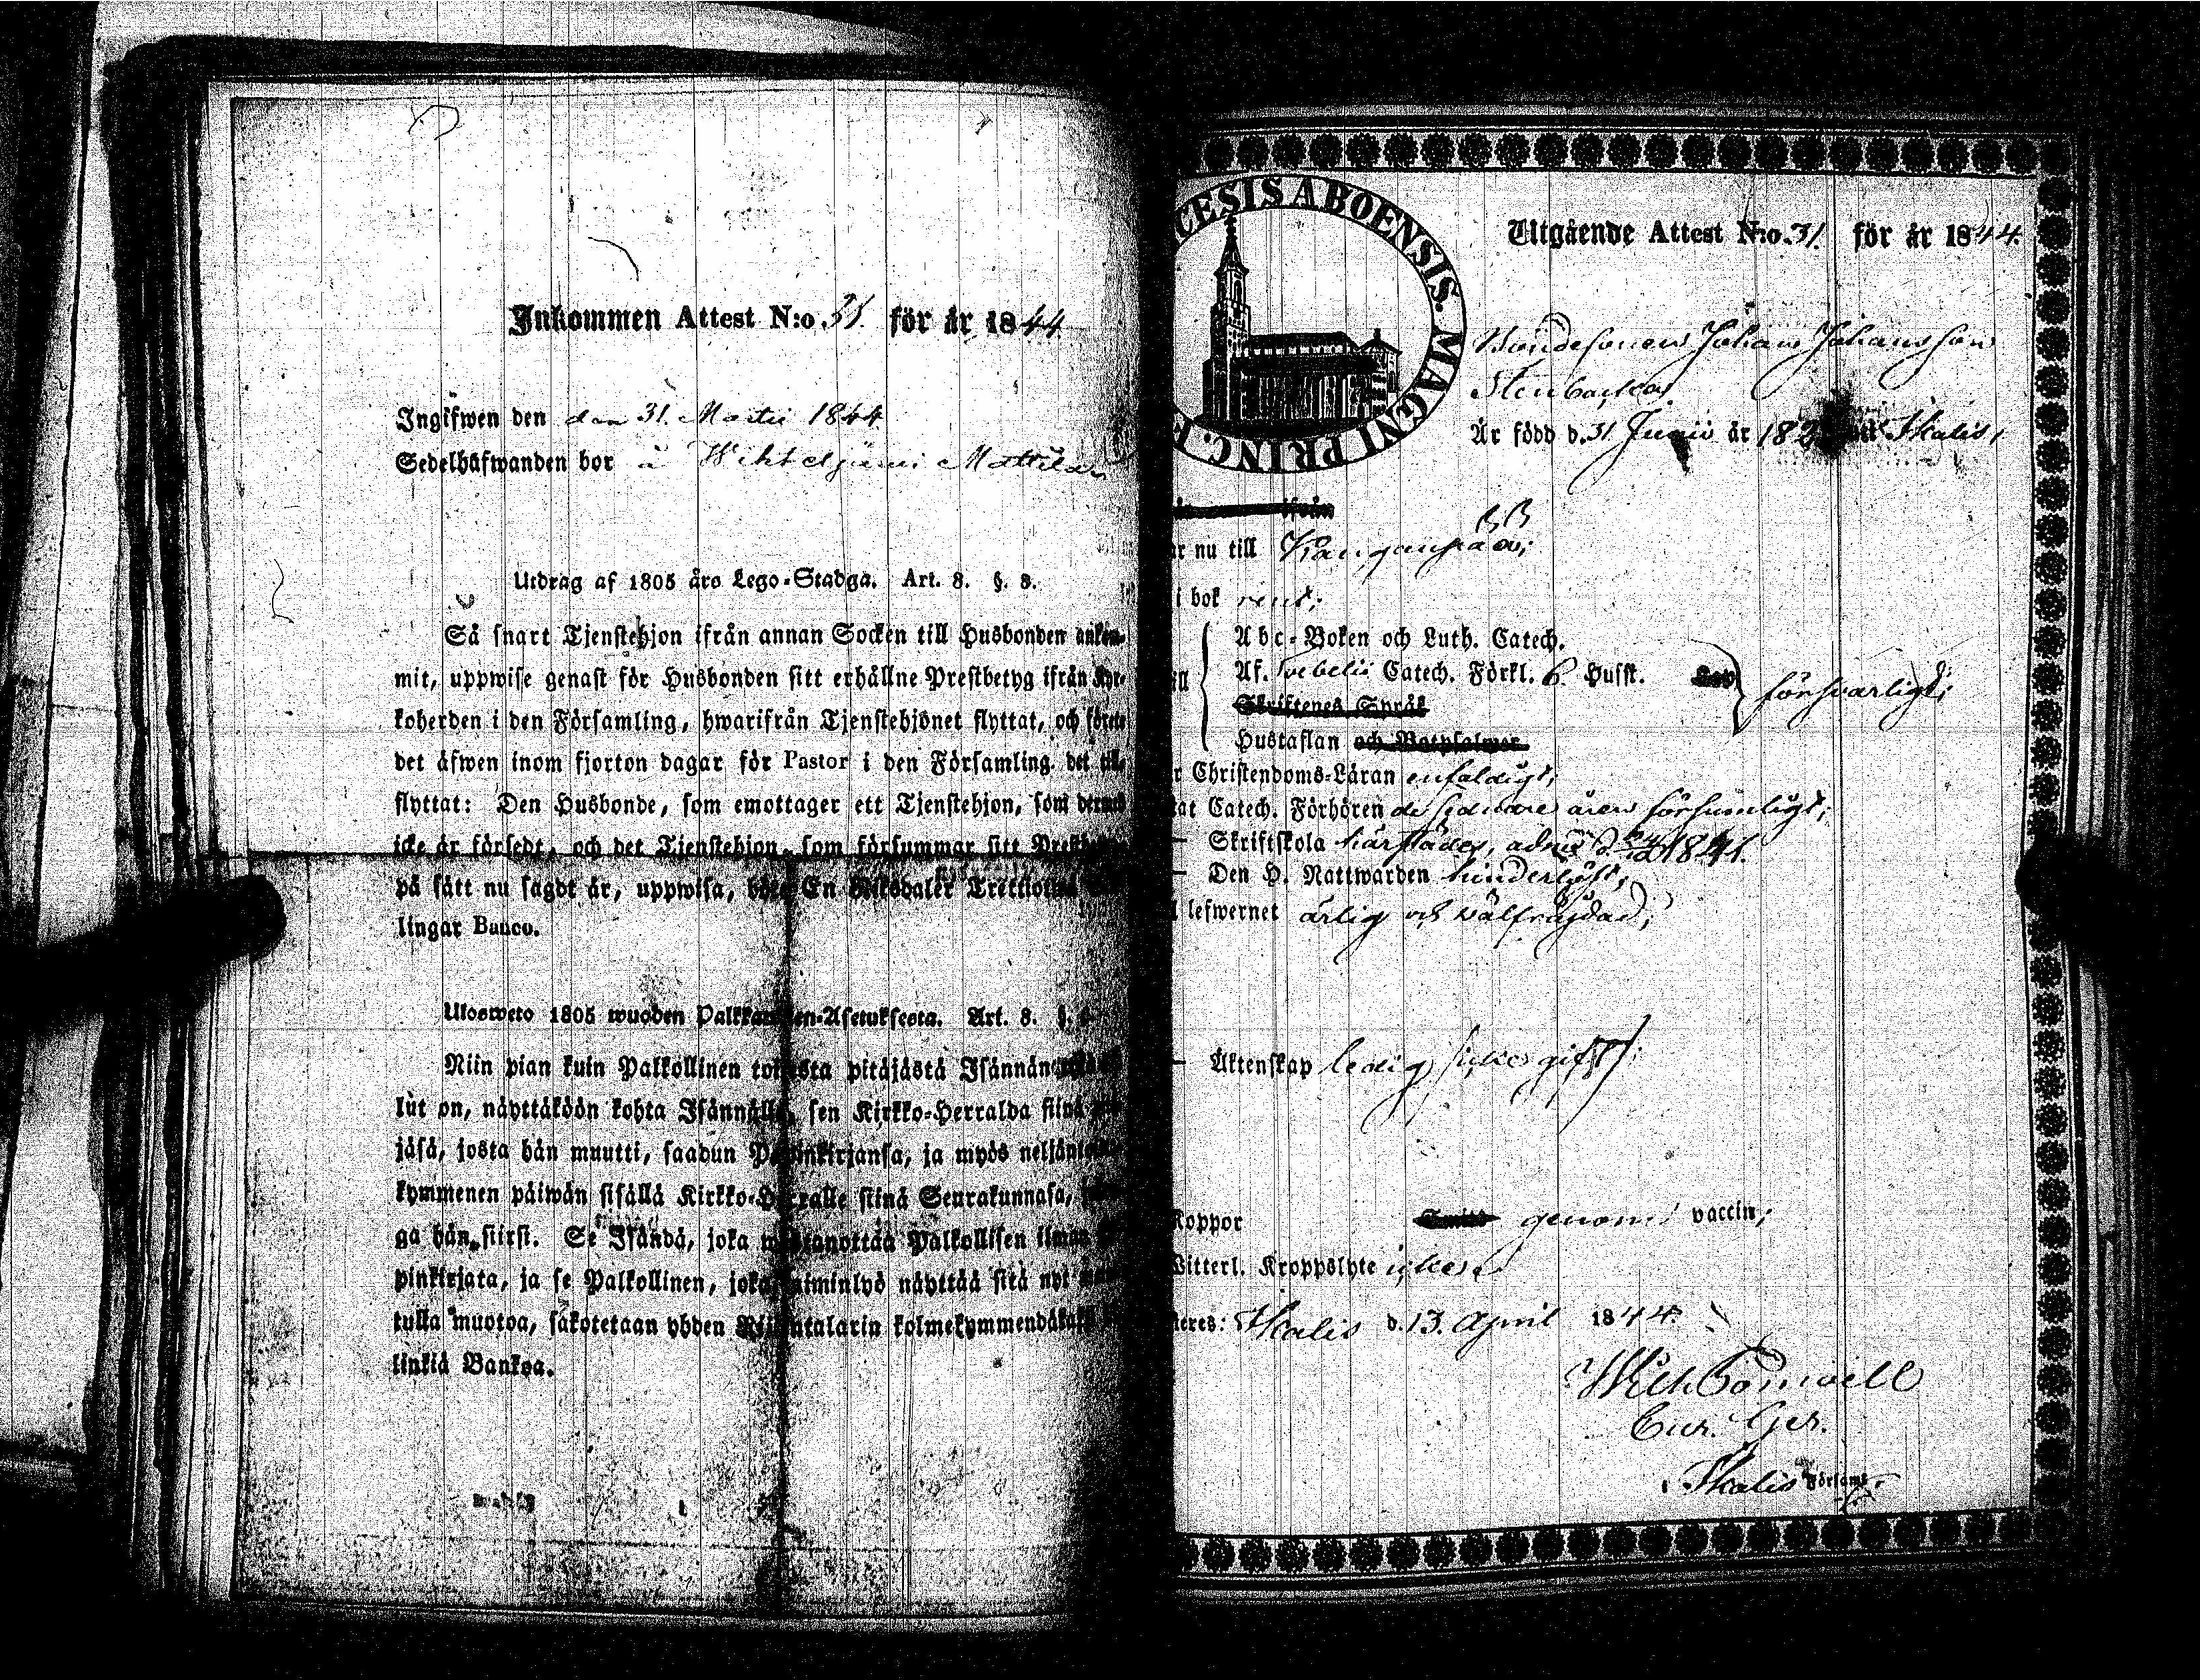 Inkommen Attest N:o 31. för år 1844.
Ingifwen den den 31. Martii 1844
Sedelhafwanden bor å Mattila
Utdrag af 1805 års Lego-Stadga. Art. 8. §. 8.
Så snart Tjenstehjon ifrån annan Socken till Husbonden ankom-
mit, uppwise genast för Husbonden sitt erhållne Prestbetyg ifrån Kyr-
koherden i den Församling, hwarifrån Tjenstehjonet flyttat, och
det äfwen inom fjorton dagar för Pastor i den Församling, det
flyttat: Den Husbonde, som emottager ett Tjenstehjon, som
icke är försedt, och det Tjenstehjon, som försummar sitt
på sätt nu sagdt är, uppwisa, böte En Riksdaler
lingar Banco.
Ulosweto 1805 wuoden Art. 8. §.
Niin pian kuin Palkollinen toisesta pitäjästä Isännän
lut on, näyttäköön kohta Isännälle, sen Kirkko-Herralda siinä
jäsä, josta hän muutti, saadun Papinkirjansa, ja myös
kymmenen päiwän sisällä Kirkko-Herralle siinä Seurakunnasa,
ga hän siirsi. Se Isändä, joka wastanottaa Palkollisen ilman
pinkirjata, ja se Palkollinen, joka laiminlyö näyttää sitä nyt
tulla muotoa, sakotetaan yhden Riksintalarin
linkiä Bankoa.
CESIS ABOENSIS. MAGNI PRINC. F
Utgående Attest N:o 31. för år 1844.
Bondesonen Johan Johansson
Stenbacka
Är född d. 31 år 182 Skalis,
ifrån
nu till Kangan
i bok rent;
Abc-Boken och Luth. Catech.
Af. Svebelii Catech. Förkl. 6. Husst. försvarligt;
Skriftenes Språk
Hustaflan och Botpsalmer
Christendoms-Läran enfaldigt;
Catech. Förhören de sednare åren försumligt;
Skriftskola härstädes, 1841.
Den H. Nattwarden hinderlöst;
lefwernet ärlig och wälfräjdad;
Äktenskap ledig, icke gift;
Koppor genom vaccin;
Witterl. Kroppslyte icke.
Skalis d. 13. April 1844.
Cur. Ger.
Skalis Församl.